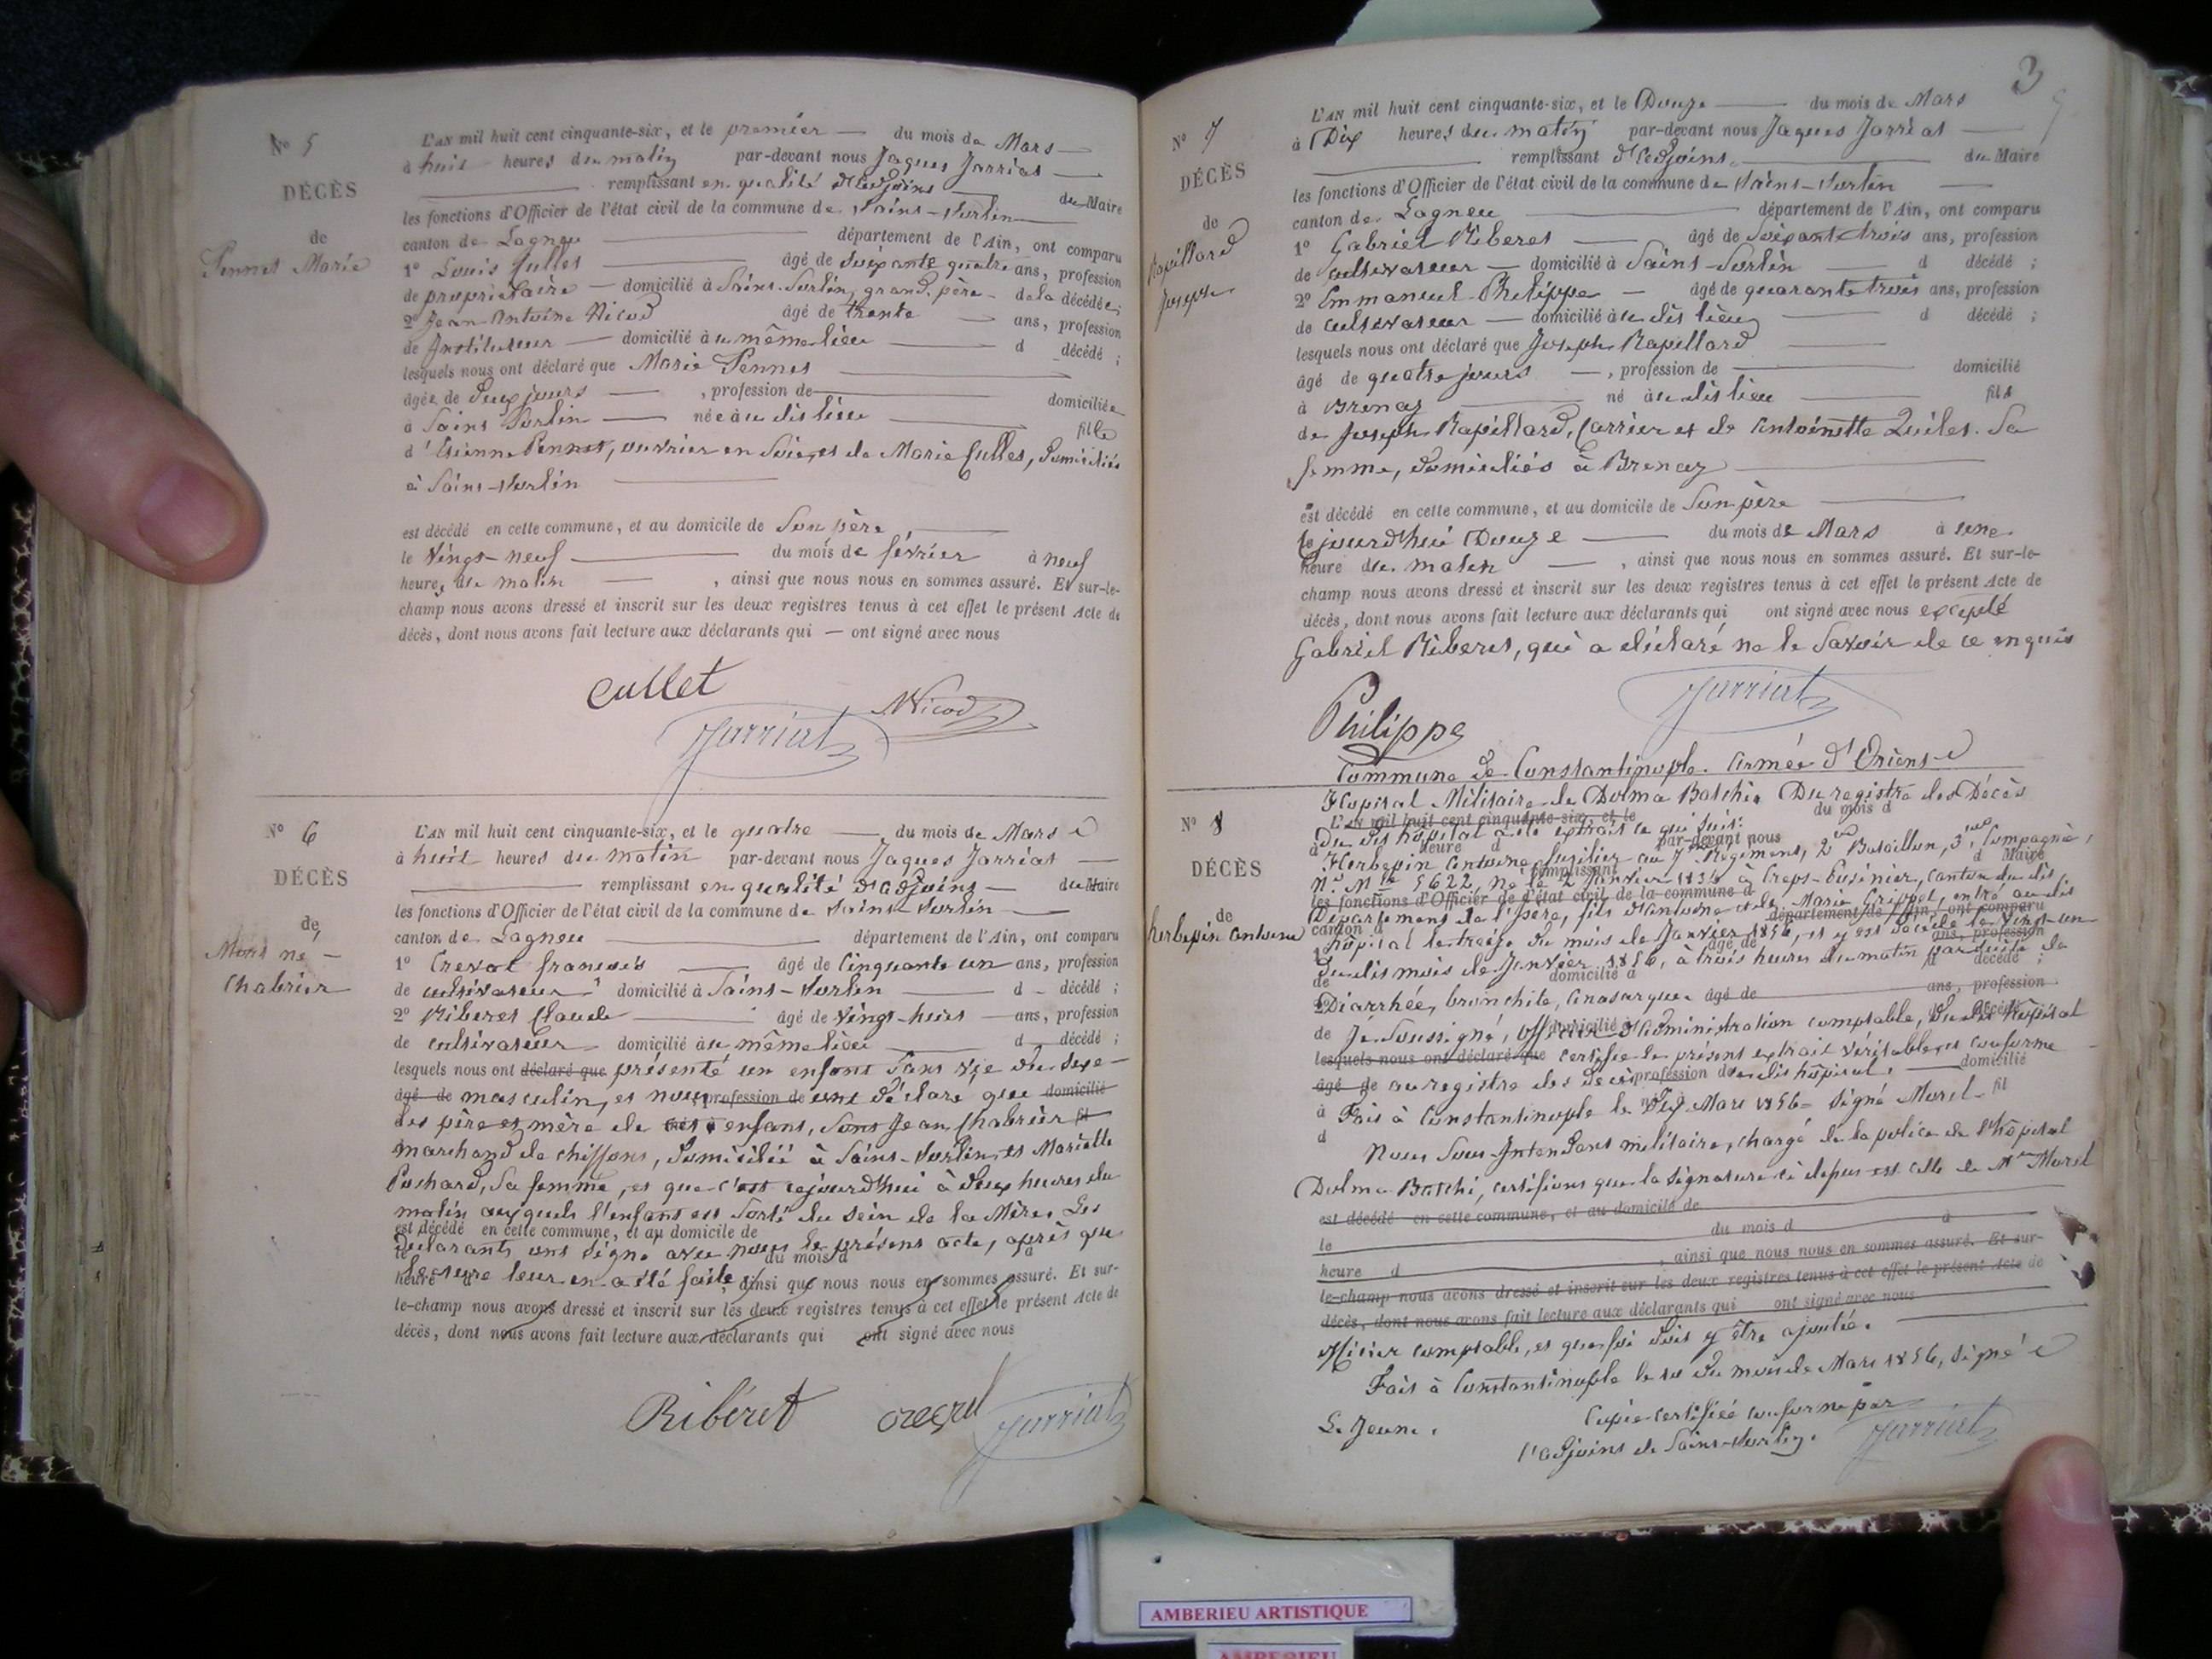 Nº 5
DÉCÈS
de
Pennet Marie
L'AN mil huit cent cinquante-six, et le premier du mois de Mars
à huit heures du matin par-devant nous Jaques Jarriat
remplissant en qualité d'adjoint du Maire
les fonctions d'Officier de l'état civil de la commune de Saint-Sorlin
canton de Lagneu département de l'Ain, ont comparu
1º Louis Cullet âgé de Soixante quatre ans, profession
de propriétaire domicilié à Saint-Sorlin, grand-père de la décédée;
2º Jean Antoine Nicod âgé de trente ans, profession
de Instituteur domicilié à u même lieu d décédé;
lesquels nous ont déclaré que Marie Pennet
âgée de Deux jours, profession de domiciliée
à Saint Sorlin née à u dit lieu fille
d'Etienne Pennet, ouvrier en Soie, et de Marie Cullet, domiciliés
à Saint-Sorlin
est décédé en cette commune, et au domicile de Son père,
le Vingt-neuf du mois de février à neuf
heures du matin, ainsi que nous nous en sommes assuré. Et sur-le-
champ nous avons dressé et inscrit sur les deux registres tenus à cet effet le présent Acte de
décès, dont nous avons fait lecture aux déclarants qui ont signé avec nous
Cullet
Nicod
Jarriat
Nº 6
DÉCÈS
de
Mort né
Chabrier
L'AN mil huit cent cinquante-six, et le quatre du mois de Mars
à huit heures du matin par-devant nous Jaques Jarriat
remplissant en qualité d'adjoint du Maire
les fonctions d'Officier de l'état civil de la commune de Saint-Sorlin
canton de Lagneu département de l'Ain, ont comparu
1º Creval francois âgé de Cinquante un ans, profession
de cultivateur domicilié à Saint-Sorlin d décédé;
2º Riberet Claude âgé de Vingt-huit ans, profession
de cultivateur domicilié à u même lieu d décédé;
lesquels nous ont déclaré que présenté un enfant Sans vie du Sexe
âgé de masculin, et nous profession de ont déclaré que domicilié
les père et mère de cet enfant, Sont Jean Chabrier fil
marchand de chiffons, domicilié à Saint-Sorlin, et Mariette
Pochard, Sa femme, et que c'est cejourd'hui à deux heures du
matin auxquels l'enfant est Sorti du Sein de la Mère. Les
est décédé en cette commune, et au domicile de
Déclarants ont Signé avec nous le présent acte, après que
le du mois d à
lecture leur en a été faite,
heure d, ainsi que nous nous en sommes assuré. Et sur-
le-champ nous avons dressé et inscrit sur les deux registres tenus à cet effet le présent Acte de
décès, dont nous avons fait lecture aux déclarants qui ont signé avec nous
Ribéret
Jarriat
3
Nº 7
DÉCÈS
de
Rapillard
Joseph
L'AN mil huit cent cinquante-six, et le Douze du mois de Mars
à Dix heures du matin par-devant nous Jaques Jarriat
remplissant d'adjoint du Maire
les fonctions d'Officier de l'état civil de la commune de Saint-Sorlin
canton de Lagneu département de l'Ain, ont comparu
1º Gabriel Riberet âgé de Soixante trois ans, profession
de cultivateur domicilié à Saint-Sorlin d décédé;
2º Emmanuel Philippe âgé de quarante trois ans, profession
de cultivateur domicilié à u dit lieu d décédé;
lesquels nous ont déclaré que Joseph Rapillard
âgé de quatre jours, profession de domicilié
à Brenaz né à u dit lieu fils
de Joseph Rapillard, Carrier et de Antoinette Sa
femme, domiciliés à Brenaz
est décédé en cette commune, et au domicile de Son père
cejourd'hui Douze du mois de Mars à une
heure du matin, ainsi que nous nous en sommes assuré. Et sur-le-
champ nous avons dressé et inscrit sur les deux registres tenus à cet effet le présent Acte de
décès, dont nous avons fait lecture aux déclarants qui ont signé avec nous excepté
Gabriel Riberet, qui a déclaré ne le Savoir de ce enquis
Philippe
Jarriat
Nº 8
DÉCÈS
de
herbepin antoine
Commune de Constantinople. Armée d'Orient
Hopital Militaire de Dolma Batchi. Du registre des Décès
L'AN mil huit cent cinquante-six, et le du mois d
du dit hopital a été extrait ce qui Suit:
à heure d par-devant nous
Herbepin Antoine fusilier au 7 Régiment, 2 Bataillon, 3 Compagnie,
remplissant d Maire
Nº Mle 5622 Né le 2 Janvier 1834 à Creps, canton du dit,
les fonctions d'Officier de l'état civil de la commune d
Département de l'Isère, fils d'Antoine et de Marie Grippet, entré au dit
canton d département de l'Ain, ont comparu
hôpital le treize du mois de Janvier 1856, et y est décédé le Vingt-un
âgé de ans, profession
du dit mois de Janvier 1856, à trois heures du matin par Suite de
de domicilié à d décédé;
Diarrhée, bronchite, Anasarque. âgé de ans, profession
de Je Soussigné, Officier d'administration comptable, du dit Hôpital
domicilié à décédé
lesquels nous ont déclaré que certifie le présent extrait véritable et conforme
âgé de au registre des décès profession de du dit hôpital. domicilié
à Fait à Constantinople le Dix Mars 1856 Signé Morel. fil
d
Nous Sous-Intendant militaire, chargé de la police de l'hôpital
Dolma Batchi, certifions que la Signature ci dessus est celle de Mr Morel
est décédé en cette commune, et au domicile de
le du mois d à
heure d, ainsi que nous nous en sommes assuré. Et sur-
le-champ nous avons dressé et inscrit sur les deux registres tenus à cet effet le présent Acte de
décès, dont nous avons fait lecture aux déclarants qui ont signé avec nous
officier comptable, et que foi doit y être ajoutée.
Fait à Constantinople le 10 du mois de Mars 1856, signé
Le Jeune.
Copie certifiée conforme par
l'adjoint de Saint-Sorlin.
Jarriat
AMBERIEU ARTISTIQUE
AMBERIEU